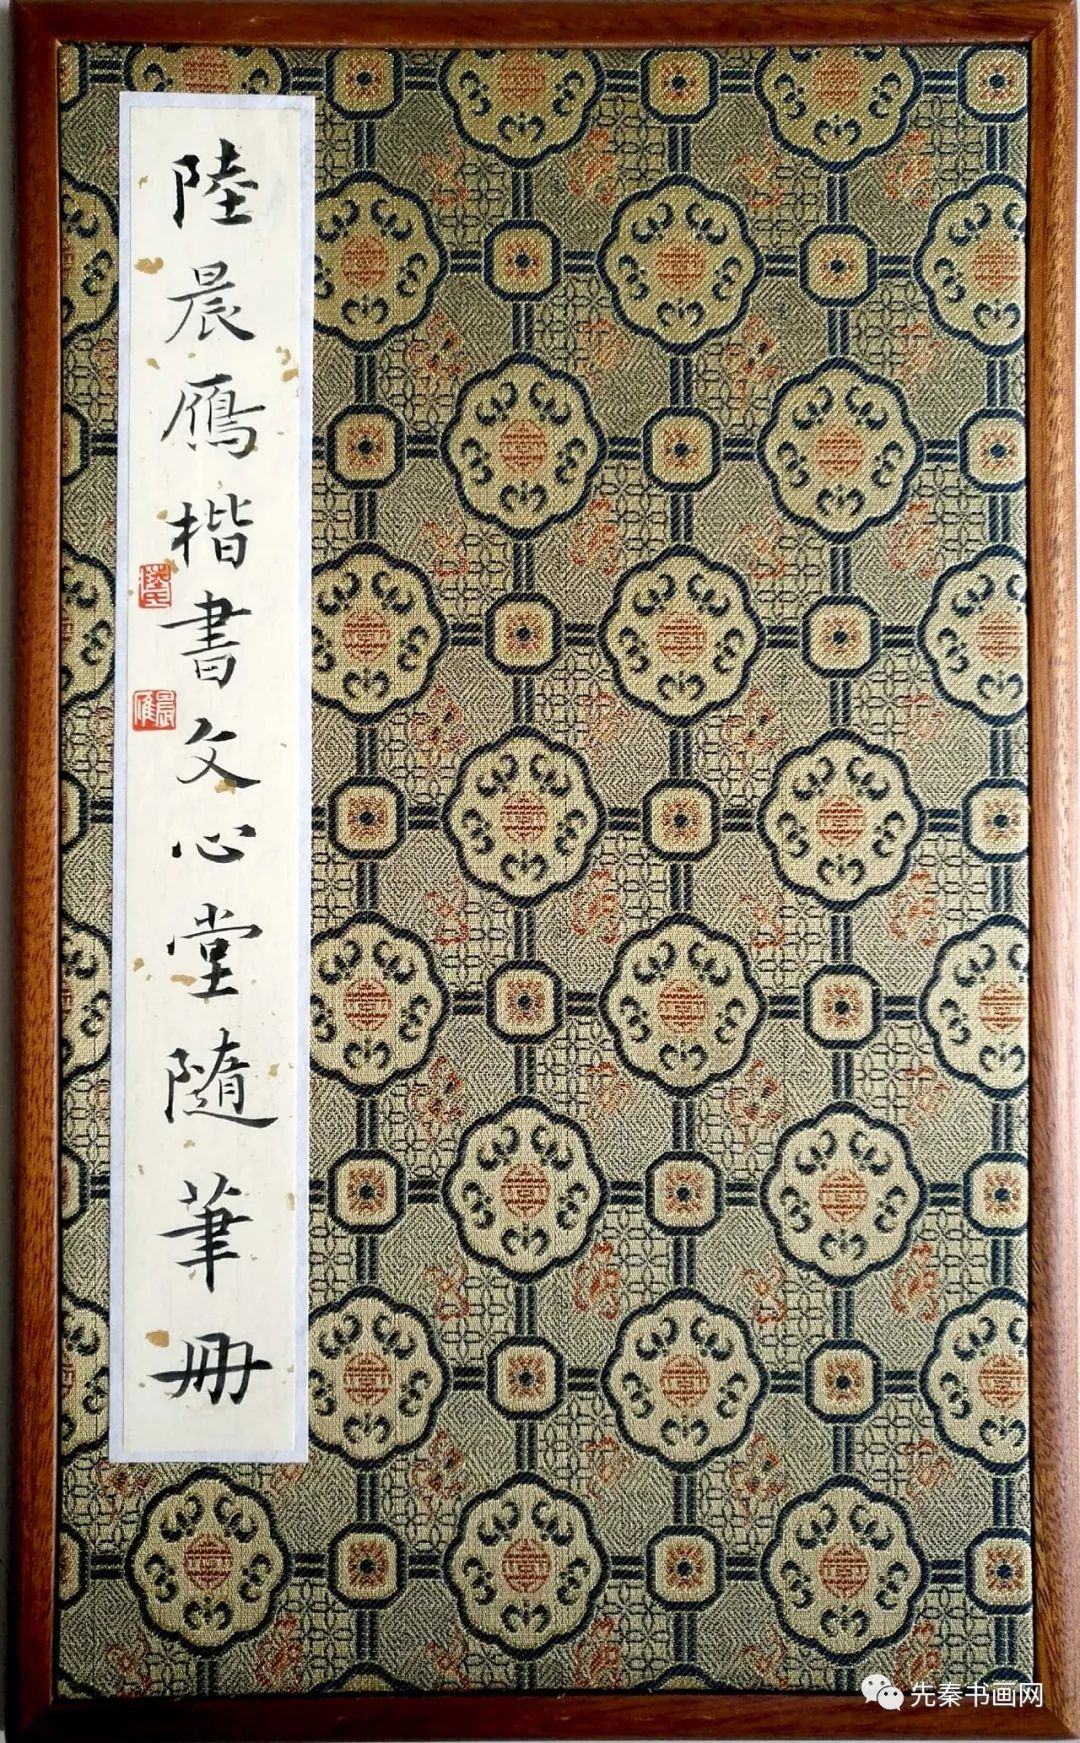 陸晨鴈楷書文心堂隨筆册
晨雁
先秦书画网